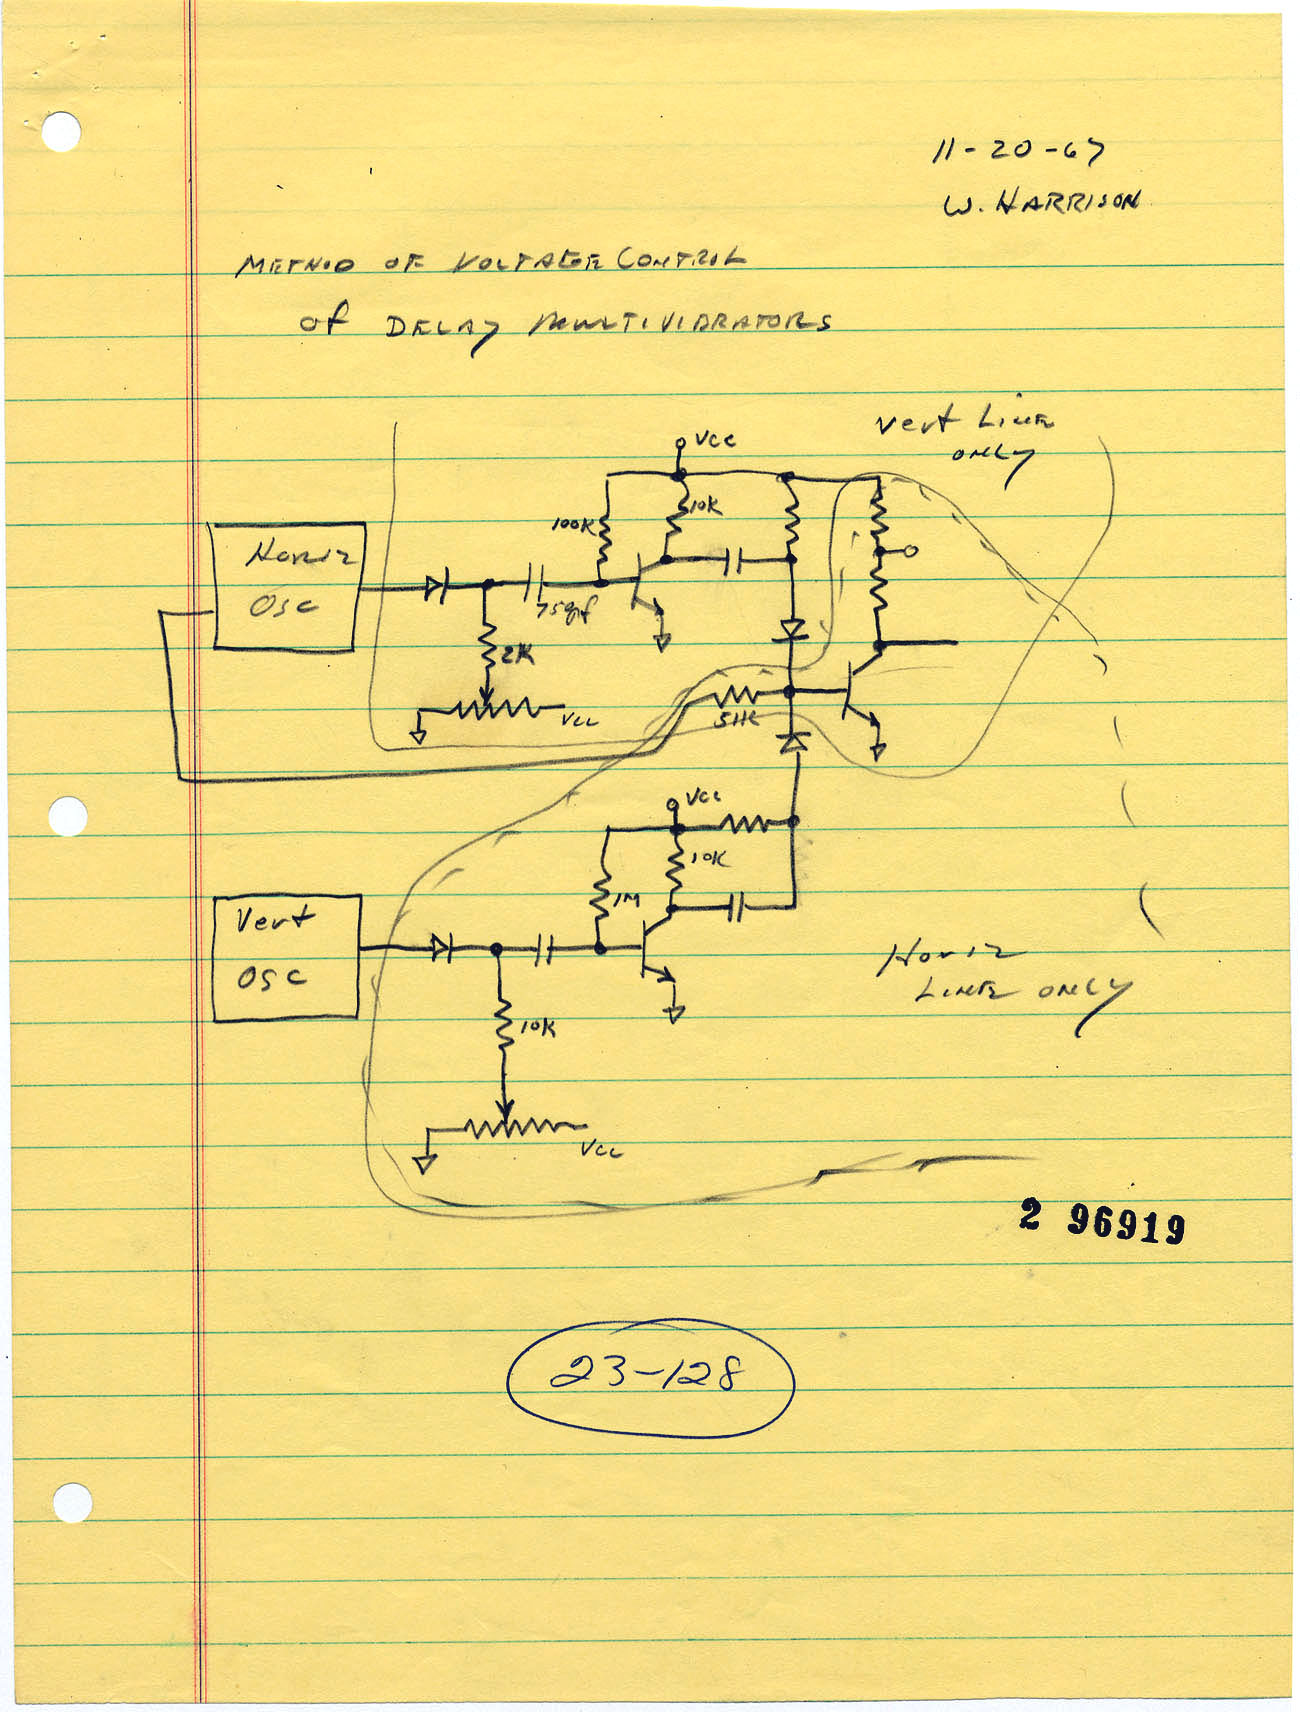 11-20-67
W. HARRISON
METHOD OF VOLTAGE CONTROL
of DELAY MULTIVIBRATORS
Vert Line
ONLY
VCC
100K
10K
Horiz
OSC
2K
VCC
51K
VCC
10K
1M
Vert
OSC
Horiz
LINE ONLY
10K
VCC
2 96919
23-128